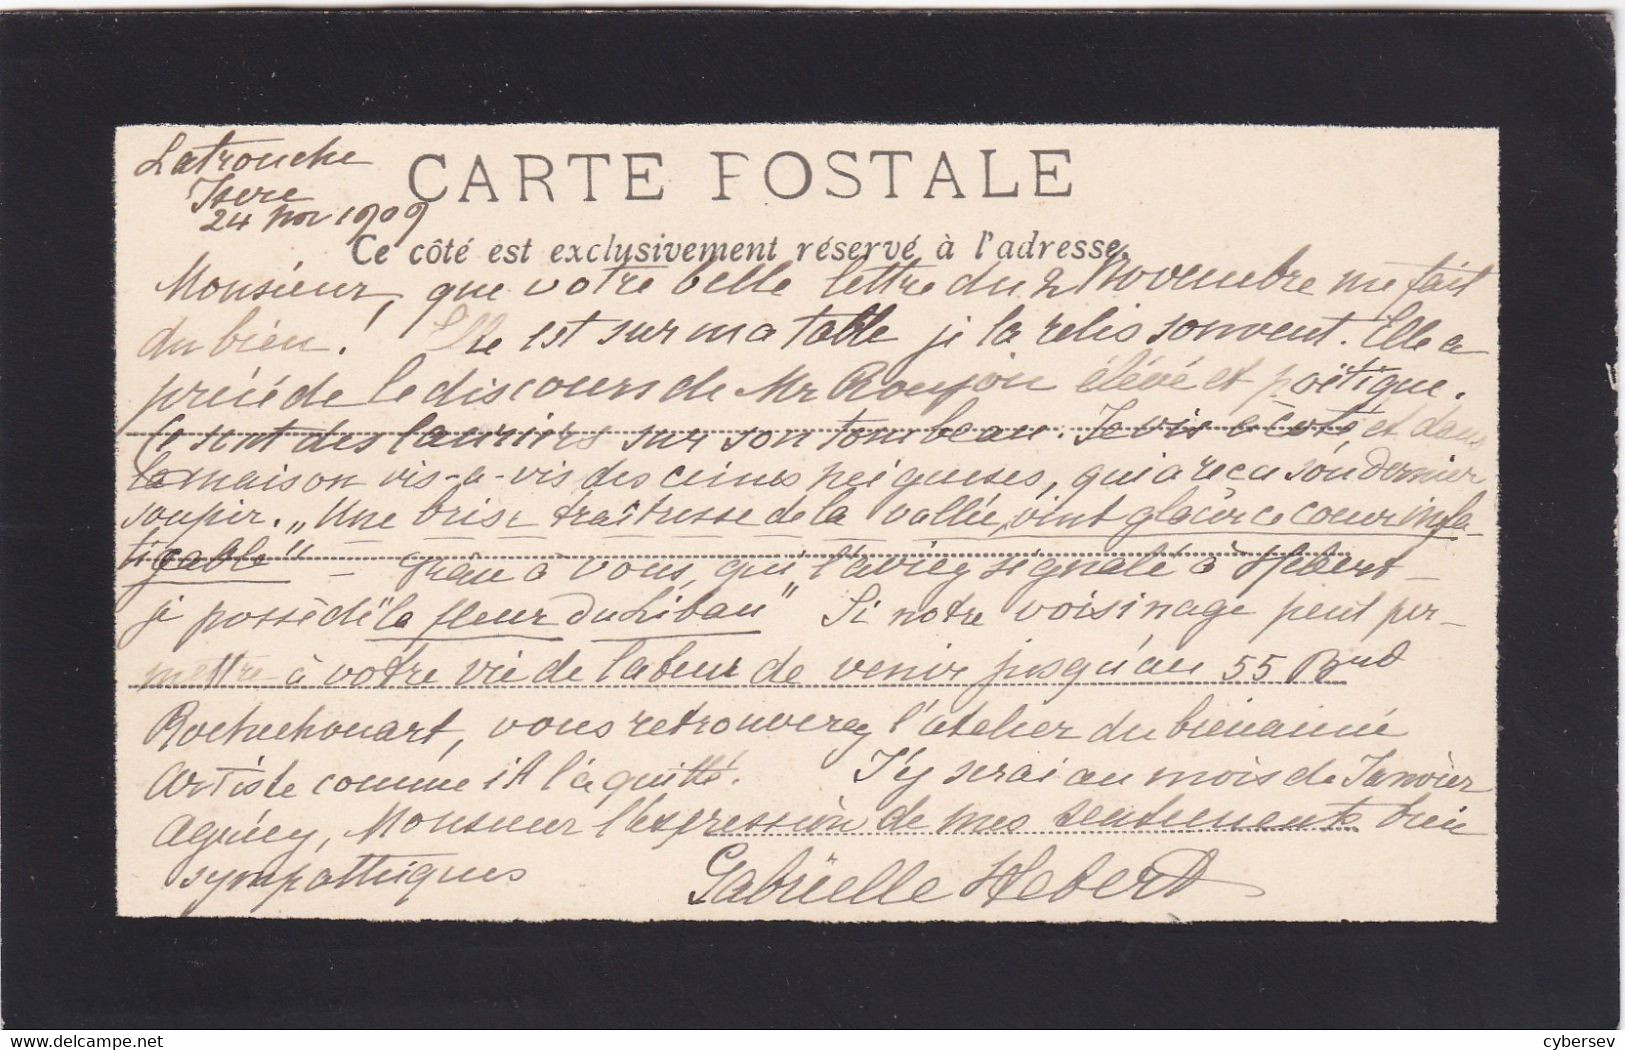 Latronche
Isere
24 Nov 1909
CARTE POSTALE
Ce côté est exclusivement réservé à l'adresse.
Monsieur, que votre belle lettre du 2 Novembre me fait
du bien! Elle est sur ma table je la relis souvent. Elle a
précédé le discours de Mr Roujon élévé et poëtique.
Ce sont des lauriers sur son tombeau. Je vis à côté, et dans
la maison vis-a-vis des cimes neigeuses, qui a reçu son dernier
soupir. "Une brise traîtresse de la vallée, vint glaçer ce cœur infa-
tigable" - Grâce à vous, qui l'aviez signalé à Hebert -
je possède "la fleur du Liban" Si notre voisinage peut per-
mettre à votre vie de labeur de venir jusqu'au 55 Bvd
Rochechouart, vous retrouverez l'atelier du bienaimé
Artiste comme il l'a quitté. J'y serai au mois de Janvier
Agréez, Monsieur l'expression de mes sentiments bien
sympathiques
Gabrielle Hebert
cybersev